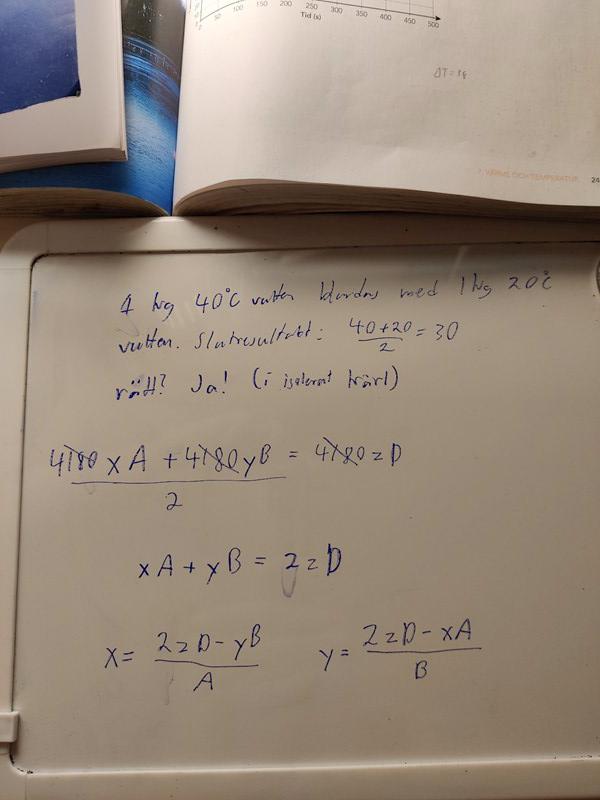 50 100 150 200 250 300 350 400 450 500
Tid (s)
ΔT =
7. VÄRME OCH TEMPERATUR 24
1 kg 40°C vatten blandas med 1 kg 20°C
vatten. Slutresultatet: (40+20)/2 = 30
rätt? Ja! (i isolerat kärl)
(4180 x A + 4180 y B)/2 = 4180 z D
xA + yB = 2zD
x = (2zD - yB)/A y = (2zD - xA)/B